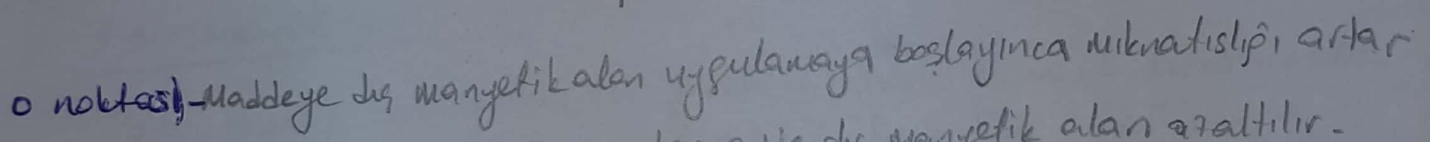 o noktası-Maddeye dış manyetik alan uygulamaya başlayınca mıknatıslığı artar
dış manyetik alan azaltılır.